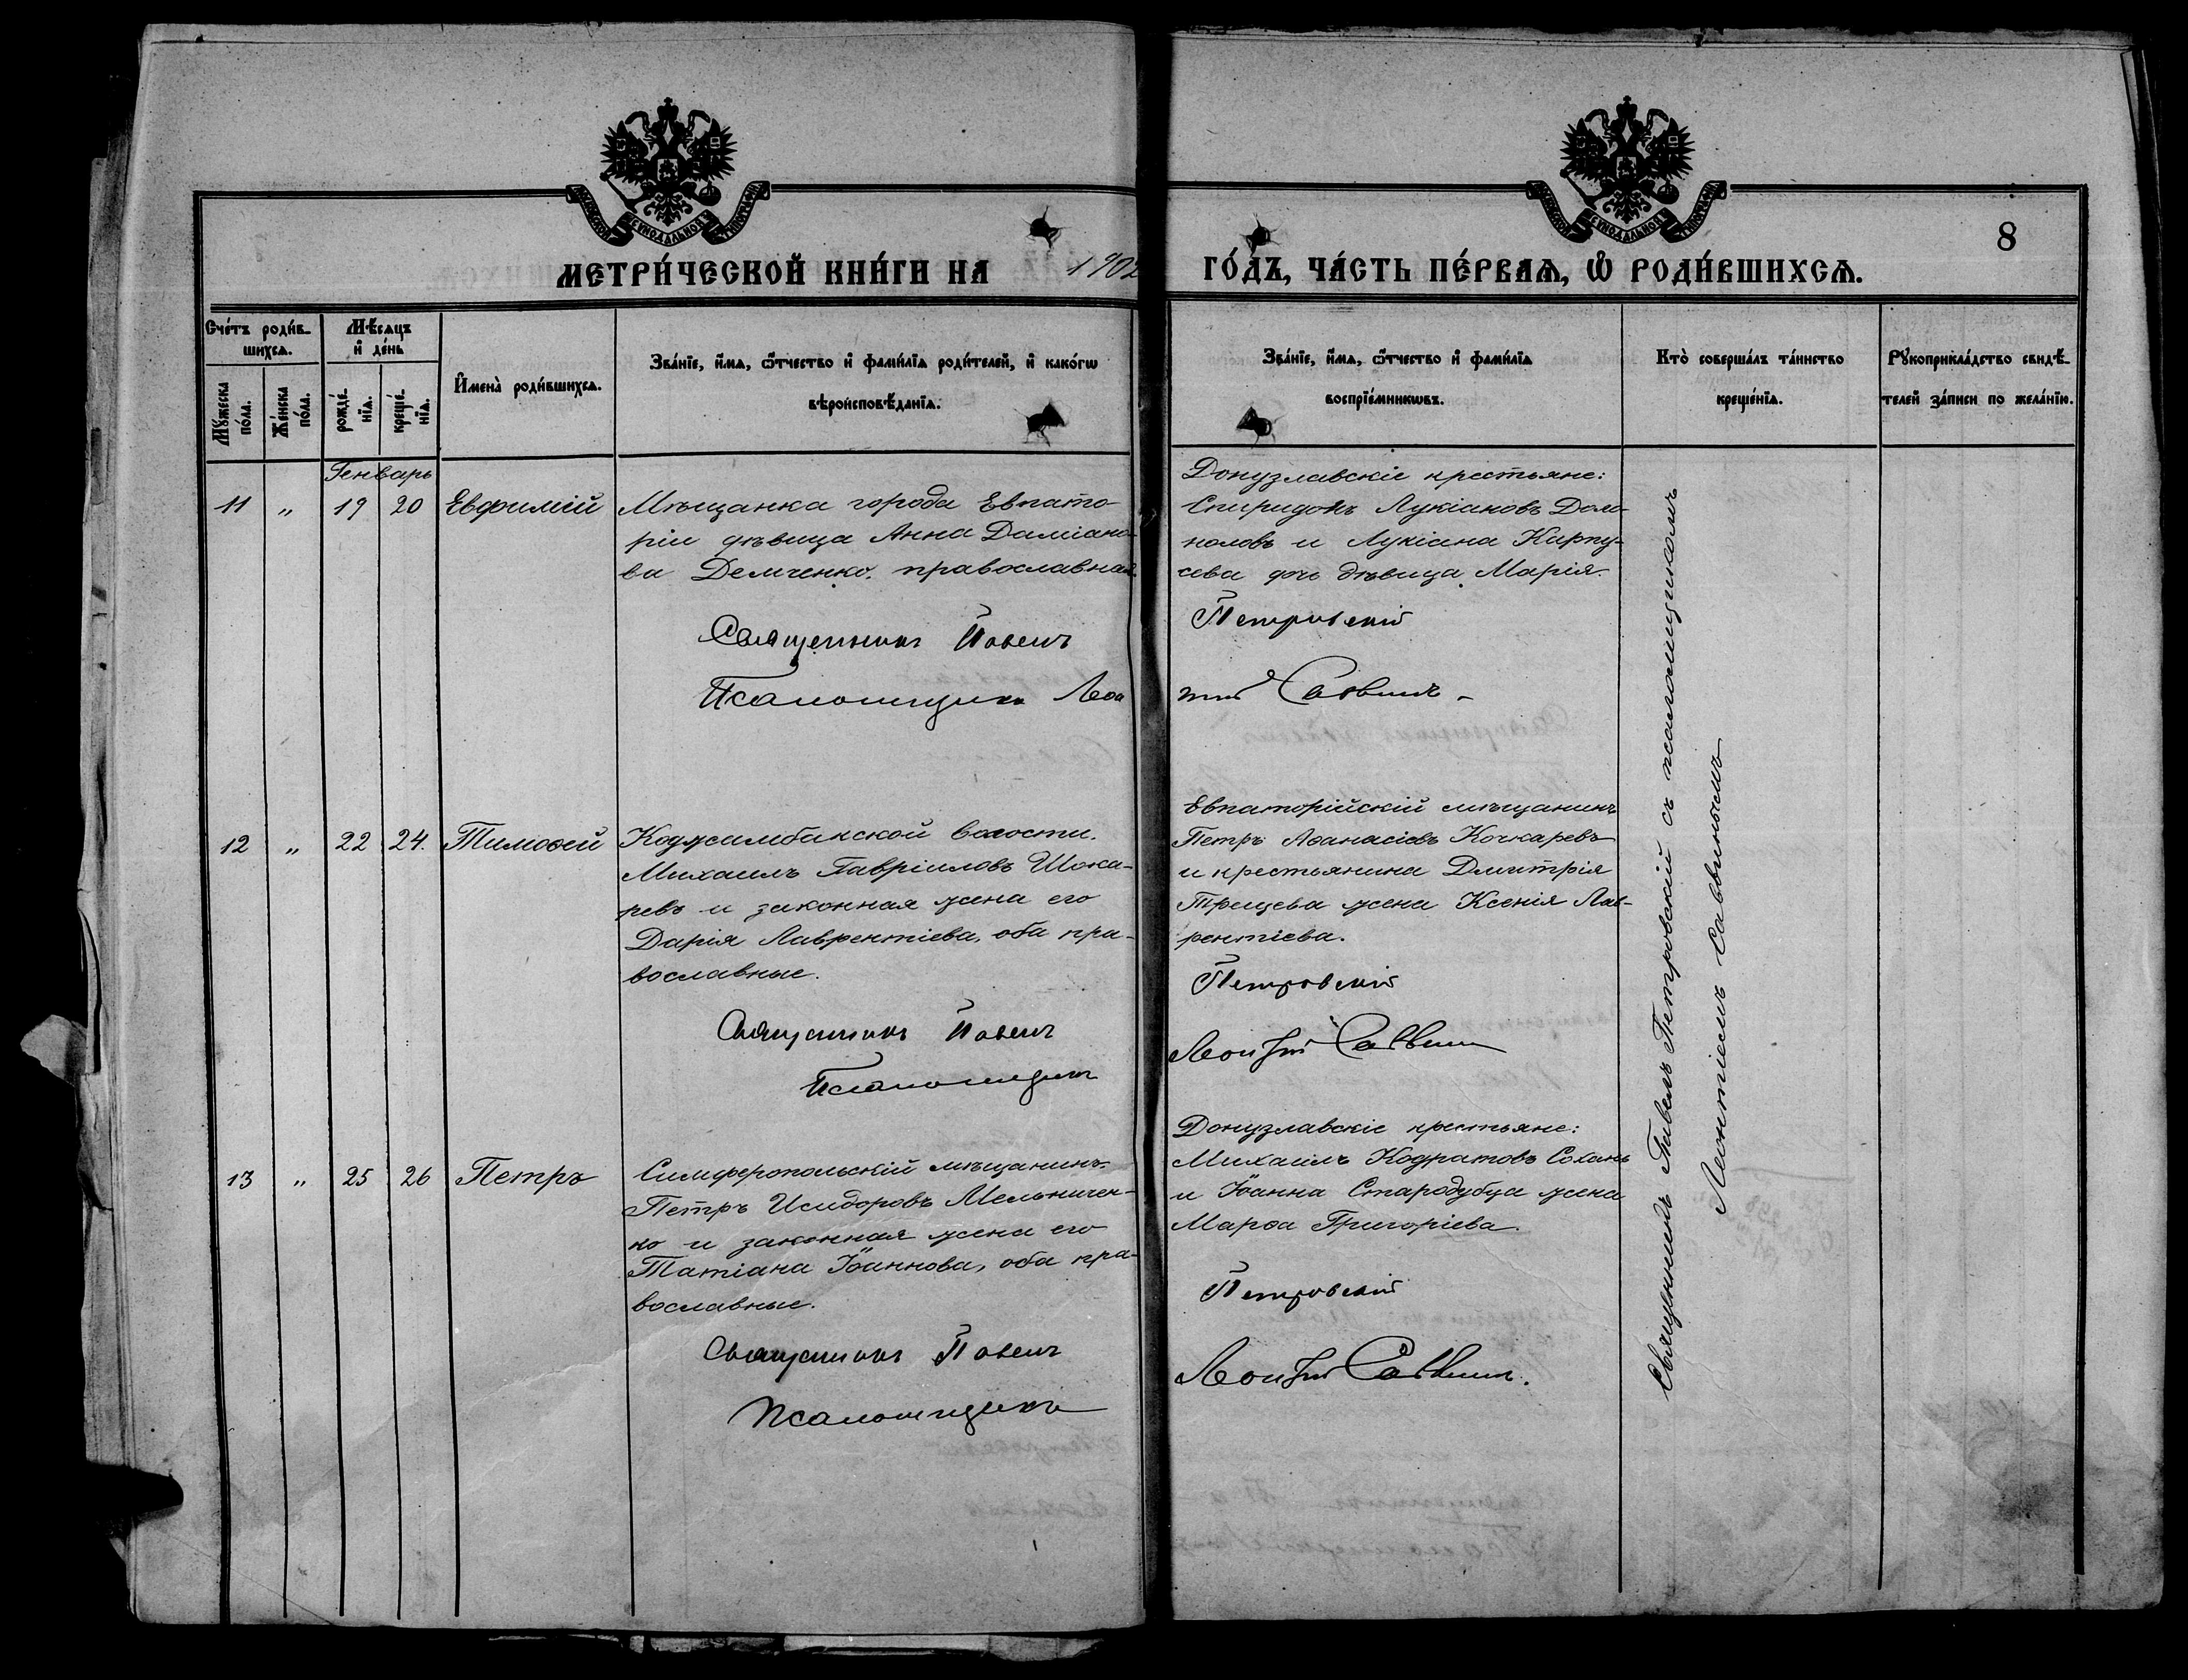 МЕТРИ́ЧЕСКОЙ КНИ́ГИ НА 1902
ГО́ДЪ, ЧА́СТЬ ПЕ́РВАѦ, Ѡ҆ РОДИ́ВШИХСѦ.
8
Сче́тъ роди́в-
шихсѧ.
Мѣ́сѧцъ
и҆ де́нь
Мꙋ́жеска
по́ла.
Же́нска
по́ла.
рожде́-
нїѧ.
креще́-
нїѧ.
И҆мена̀ роди́вшихсѧ.
Зва́нїе, и҆́мѧ, ѻ҆́тчество и҆ фами́лїѧ роди́телей, и҆ како́гѡ
вѣроисповѣ́данїѧ.
Зва́нїе, и҆́мѧ, ѻ҆́тчество и҆ фами́лїѧ
воспрїе́мникѡвъ.
Кто̀ соверша́лъ та́инство
креще́нїѧ.
Рꙋкоприкла́дство свидѣ́-
телей за́писи по жела́нїю.
Генварь
11 " 19 20 Евфимій
Мѣщанка города Евпато-
ріи дѣвица Анна Даміано-
ва Демченко, православная.
Священникъ Павелъ
Псаломщикъ Леон
Донузлавскіе крестьяне:
Спиридонъ Лукіановъ
и Лукіана Карпу-
сева дочь дѣвица Марія.
Петровскій
тій Саввинъ
12 " 22 24. Тимоѳей
Коджамбакской волости.
Михаилъ Гавріиловъ
ревъ и законная жена его
Дарія Лаврентіева, оба пра-
вославные.
Священникъ Павелъ
Псаломщикъ
Евпаторійскій мѣщанинъ
Петръ Аѳанасіевъ Кочкаревъ
и крестьянина Дмитрія
Трещева жена Ксенія Лав-
рентіева.
Петровскій
Леонтій Саввинъ
13 " 25 26 Петръ
Симферопольскій мѣщанинъ
Петръ Исидоровъ Мельничен-
ко и законная жена его
Татіана Іоаннова, оба пра-
вославные.
Священникъ Павелъ
Псаломщикъ
Донузлавскіе крестьяне:
Михаилъ Кодратовъ Сохань
и Іоанна Стародубца жена
Марѳа Григоріева.
Петровскій
Леонтій Саввинъ.
Священникъ Павелъ Петровскій съ псаломщикомъ
Леонтіемъ Саввинымъ